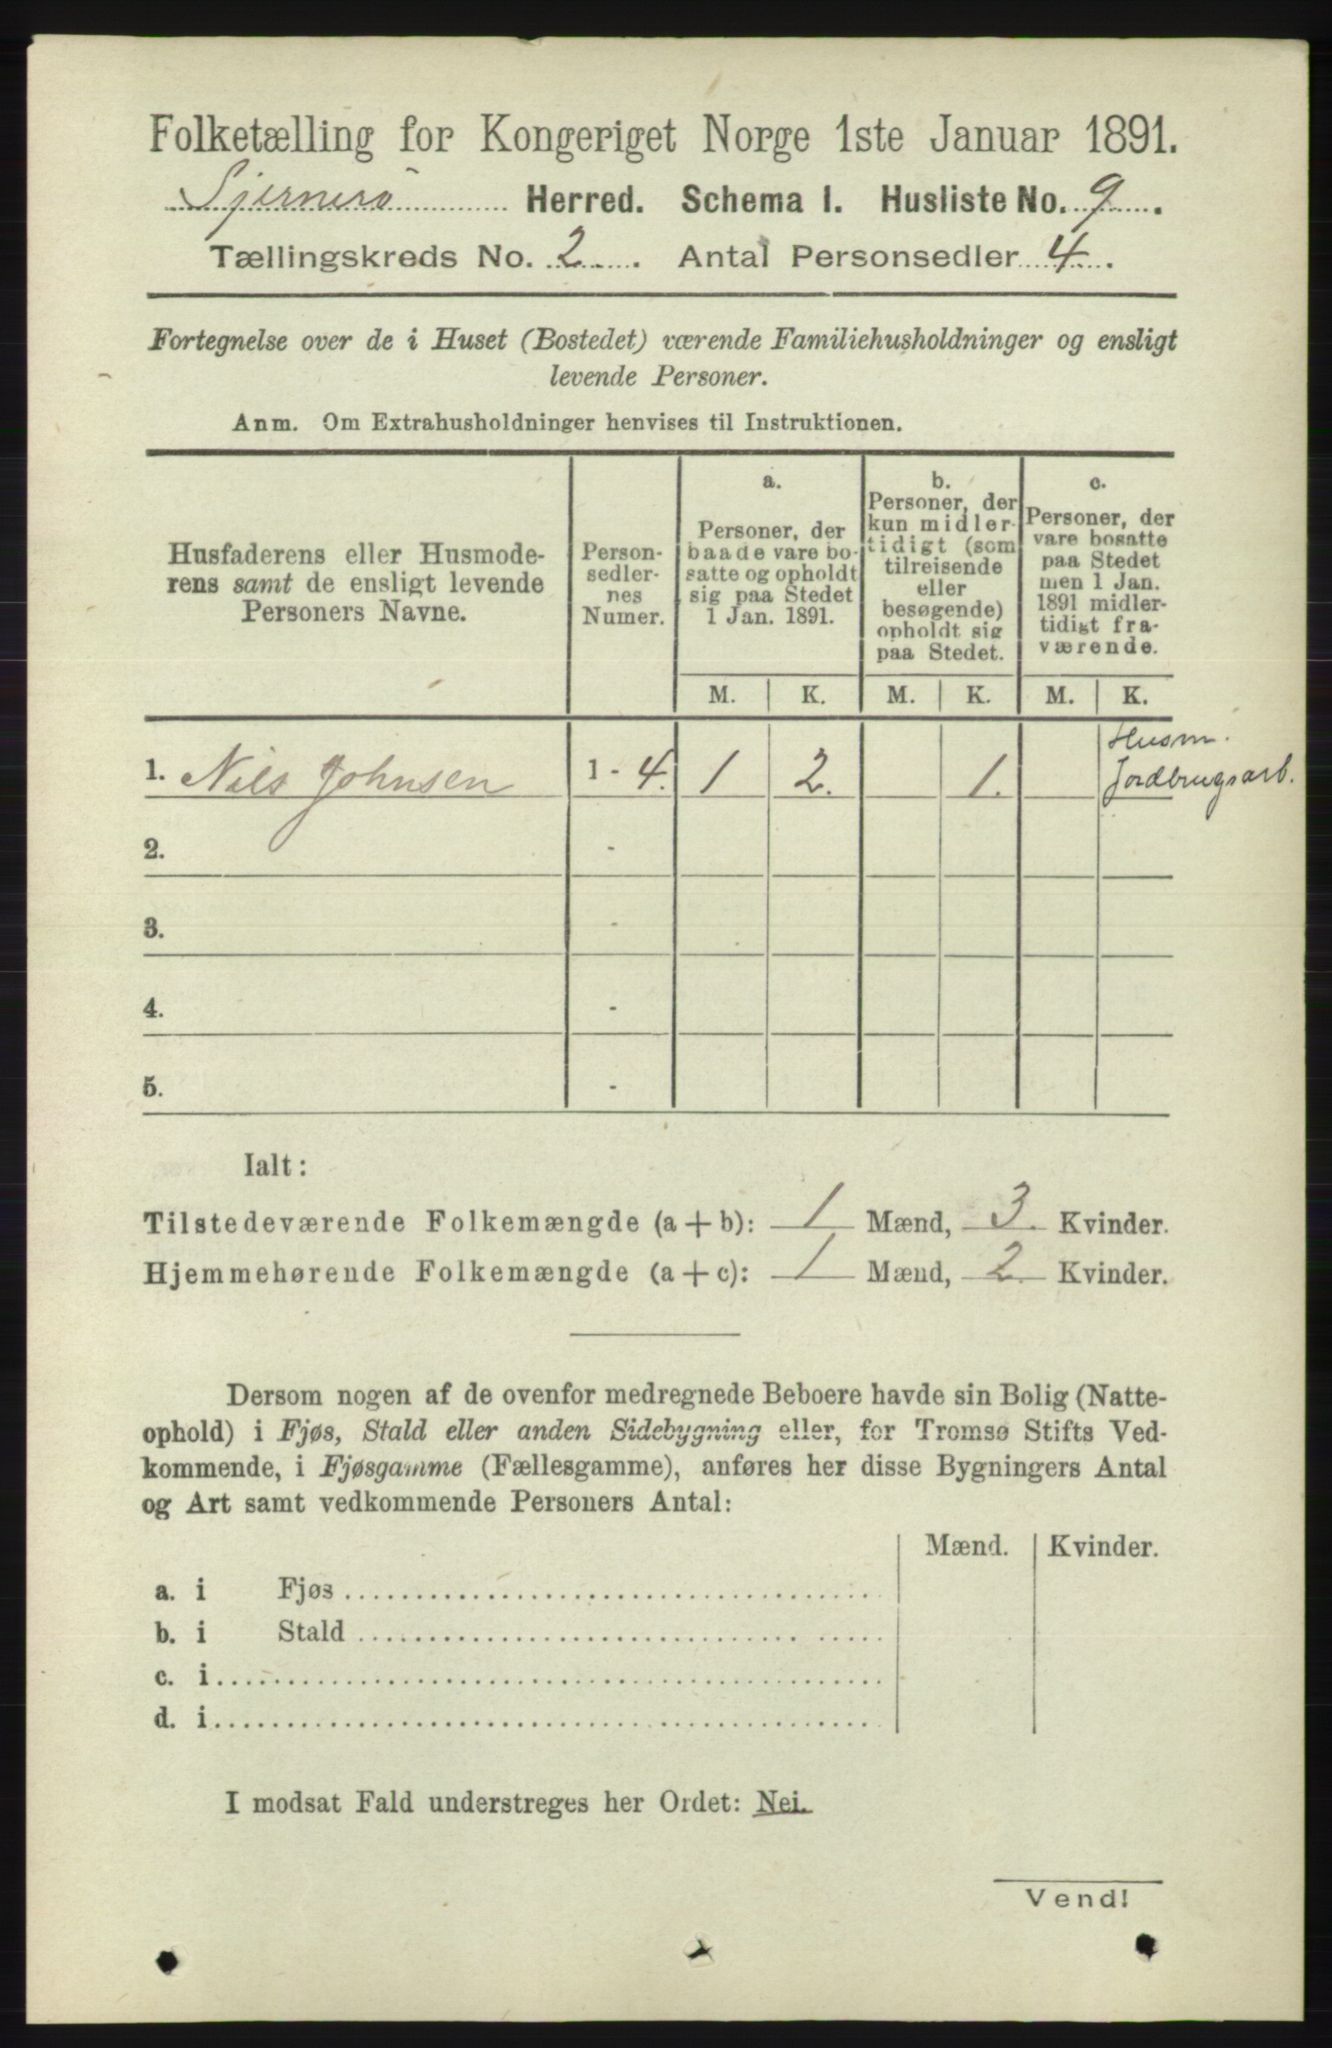 Folketælling for Kongeriget Norge 1ste Januar 1891.
Sjernerö Herred. Schema 1. Husliste No. 9.
Tællingskreds No. 2. Antal Personsedler 4.
Fortegnelse over de i Huset (Bostedet) værende Familiehusholdninger og ensligt
levende Personer.
Anm. Om Extrahusholdninger henvises til Instruktionen.
Husfaderens eller Husmode-
rens samt de ensligt levende
Personers Navne.
Person-
sedler-
nes
Numer.
a.
Personer, der
baade vare bo-
satte og opholdt
sig paa Stedet
1 Jan. 1891.
b.
Personer, der
kun midler-
tidigt (som
tilreisende
eller
besøgende)
opholdt sig
paa Stedet.
c.
Personer, der
vare bosatte
paa Stedet
men 1 Jan.
1891 midler-
tidigt fra-
værende.
M. K. M. K. M. K.
Husm.
1. Nils Johnsen 1 - 4. 1 2. 1. Jordbrugsarb.
2. -
3. -
4. -
5. -
Ialt:
Tilstedeværende Folkemængde (a + b): 1 Mænd, 3. Kvinder.
Hjemmehørende Folkemængde (a + c): 1 Mænd, 2. Kvinder.
Dersom nogen af de ovenfor medregnede Beboere havde sin Bolig (Natte-
ophold) i Fjøs, Stald eller anden Sidebygning eller, for Tromsø Stifts Ved-
kommende, i Fjøsgamme (Fællesgamme), anføres her disse Bygningers Antal
og Art samt vedkommende Personers Antal:
Mænd. Kvinder.
a. i Fjøs
b. i Stald
c. i
d. i
I modsat Fald understreges her Ordet: Nei.
Vend!